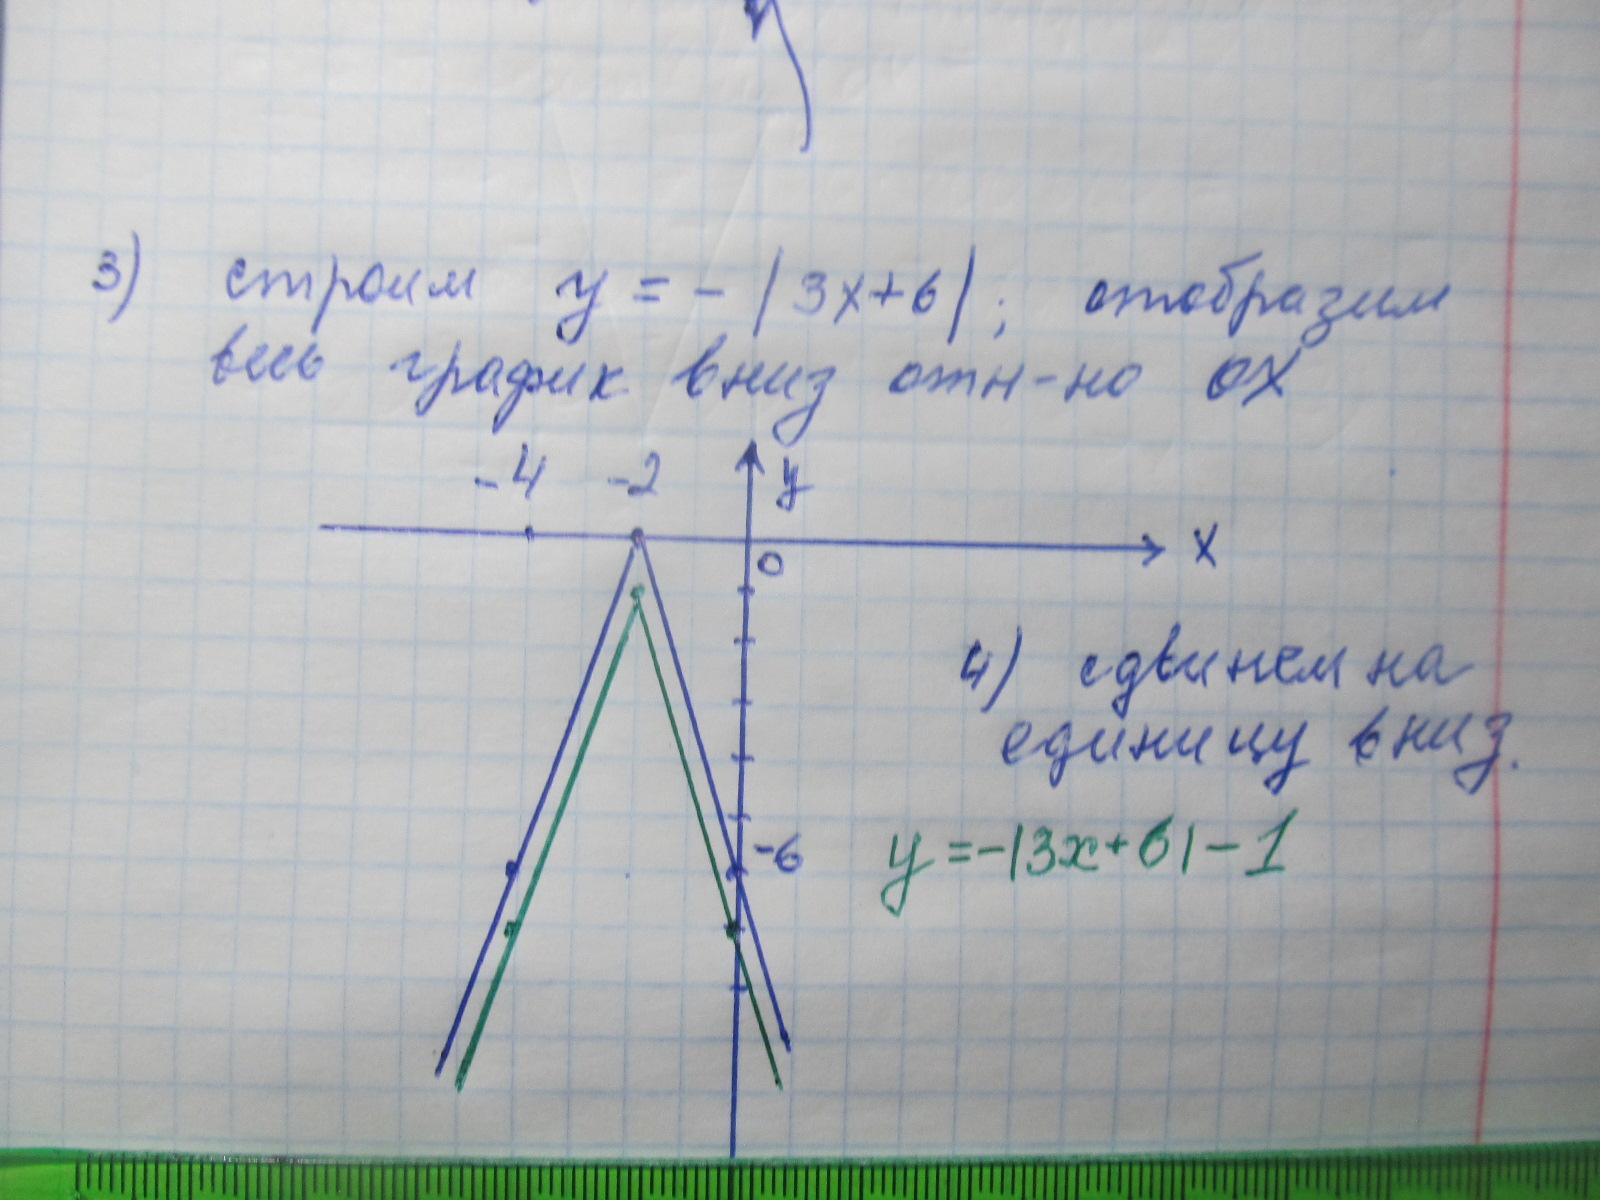 3) строим y = - |3x+6|; отобразим
весь график вниз отн-но OX
-4 -2 y
x
0
4) сдвинем на
единицу вниз.
-6
y =-|3x+6|-1